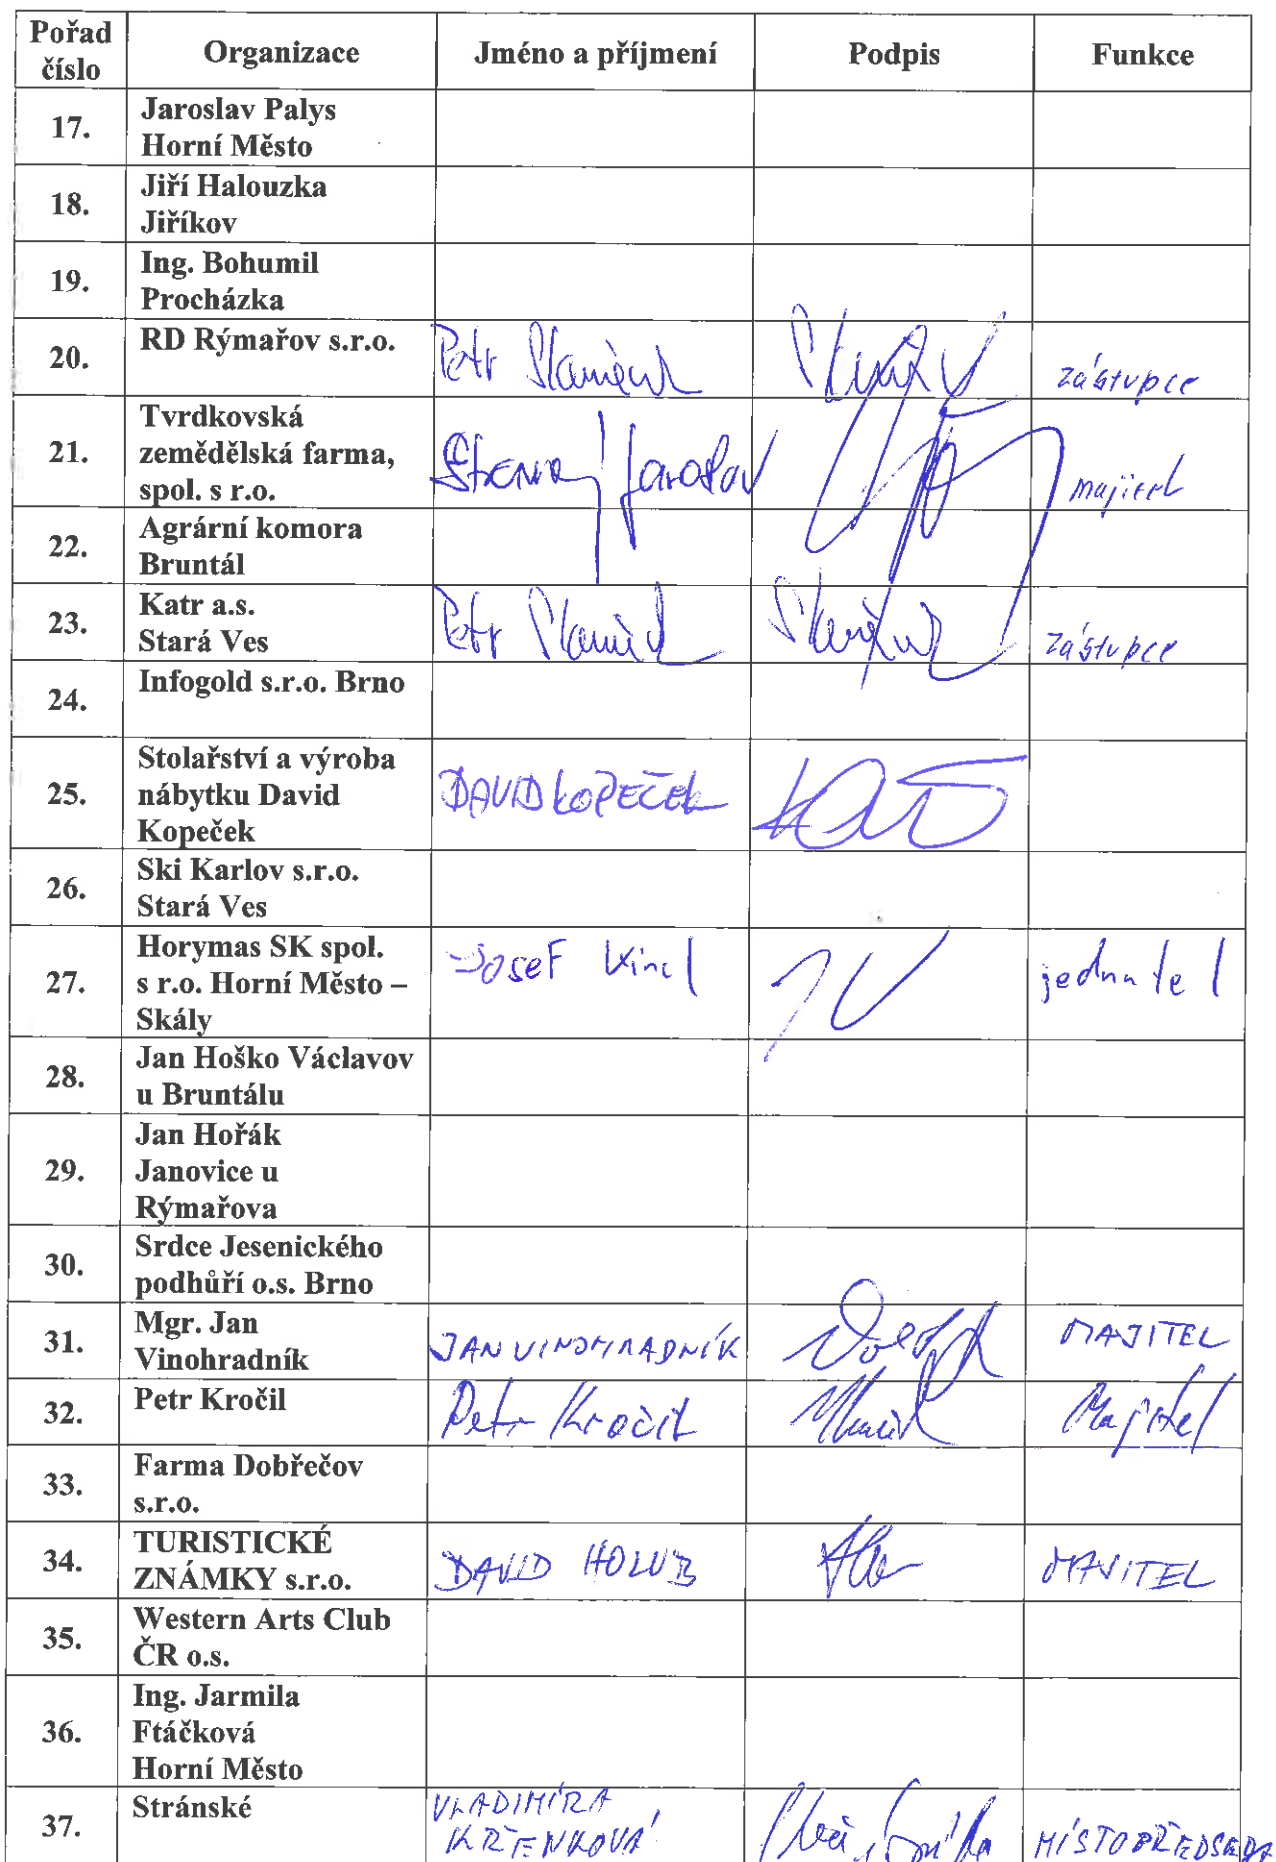 Pořad číslo Organizace Jméno a příjmení Podpis Funkce
17. Jaroslav Palys
Horní Město
18. Jiří Halouzka
Jiříkov
19. Ing. Bohumil
Procházka
20. RD Rýmařov s.r.o. Petr zástupce
21. Tvrdkovská
zemědělská farma,
spol. s r.o. Jaroslav majitel
22. Agrární komora
Bruntál
23. Katr a.s.
Stará Ves Petr zástupce
24. Infogold s.r.o. Brno
25. Stolařství a výroba
nábytku David
Kopeček DAVID KOPEČEK
26. Ski Karlov s.r.o.
Stará Ves
27. Horymas SK spol.
s r.o. Horní Město –
Skály Josef Kincl jednatel
28. Jan Hoško Václavov
u Bruntálu
29. Jan Hořák
Janovice u
Rýmařova
30. Srdce Jesenického
podhůří o.s. Brno
31. Mgr. Jan
Vinohradník JAN VINOHRADNÍK MAJITEL
32. Petr Kročil Petr Kročil Majitel
33. Farma Dobřečov
s.r.o.
34. TURISTICKÉ
ZNÁMKY s.r.o. DAVID HOLUB MAJITEL
35. Western Arts Club
ČR o.s.
36. Ing. Jarmila
Ftáčková
Horní Město
37. Stránské VLADIMÍRA
KŘENKOVÁ MÍSTOPŘEDSEDA